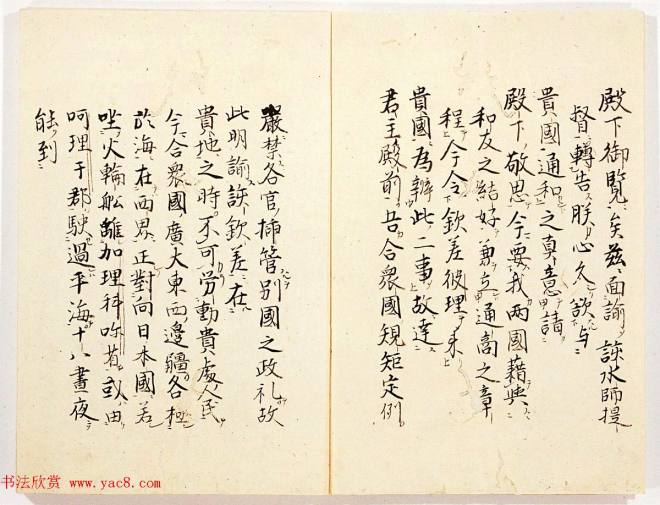 殿下御覧矣茲面諭該水師提
督轉告朕心久欲与
貴國通和之真意請
殿下敬思今要我两國藉典
和友之結好兼立通商之章
程今令欽差彼理来
貴國為辦此二事故達
君主殿前吾合衆國規矩定例
嚴禁各官挿管別國之政礼故
此明諭該欽差在
貴地之時不可労動貴處人民
今合衆國廣大東西邊疆各極
於海在西界正對向日本國若
坐火輪舩離加理科你省或由
呵理于郡駛過平海十八晝夜
能到
书法欣赏 www.yac8.com